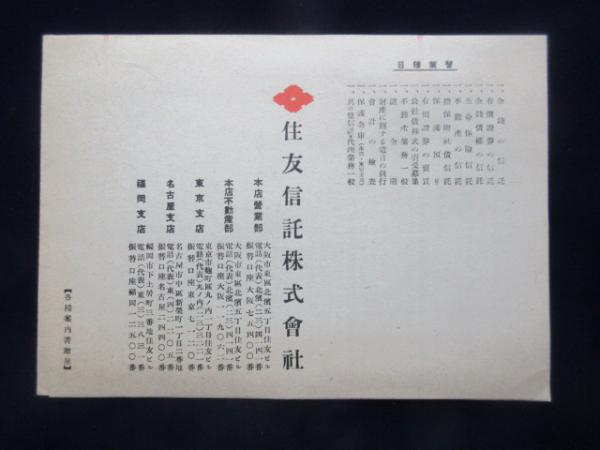 營業種目
一、金錢の信託
一、有價證券の信託
一、金錢債權の信託
一、生命保險信託
一、不動產の信託
一、擔保附社債信託
一、保護預り
一、有價證券の賣買
一、公社債株式の引受募集
一、不動產業務一般
一、貸金
一、財產に關する遺言の執行
一、會計の檢査
一、保護金庫
一、其の他信託・代理業務一般
住友信託株式會社
本店營業部
大阪市東區北濱五丁目住友ビル
電話(代表)北濱(二三)四一四一番
振替口座大阪七五四〇〇番
本店不動產部
大阪市東區北濱五丁目住友ビル
電話(代表)北濱(二三)四一四一番
振替口座大阪一一九〇六二番
東京支店
東京市麴町區丸ノ內一丁目住友ビル
電話(代表)丸ノ內(二三)三二二一番
振替口座東京七一一二〇番
名古屋支店
名古屋市中區新榮町一丁目二番地
電話(代表)東(四)二二〇五番
振替口座名古屋二四四〇〇番
福岡支店
福岡市下土居町三番地住友ビル
電話(代表)東(三)三八三一番
振替口座福岡二二五〇〇番
【各種案內書贈呈】